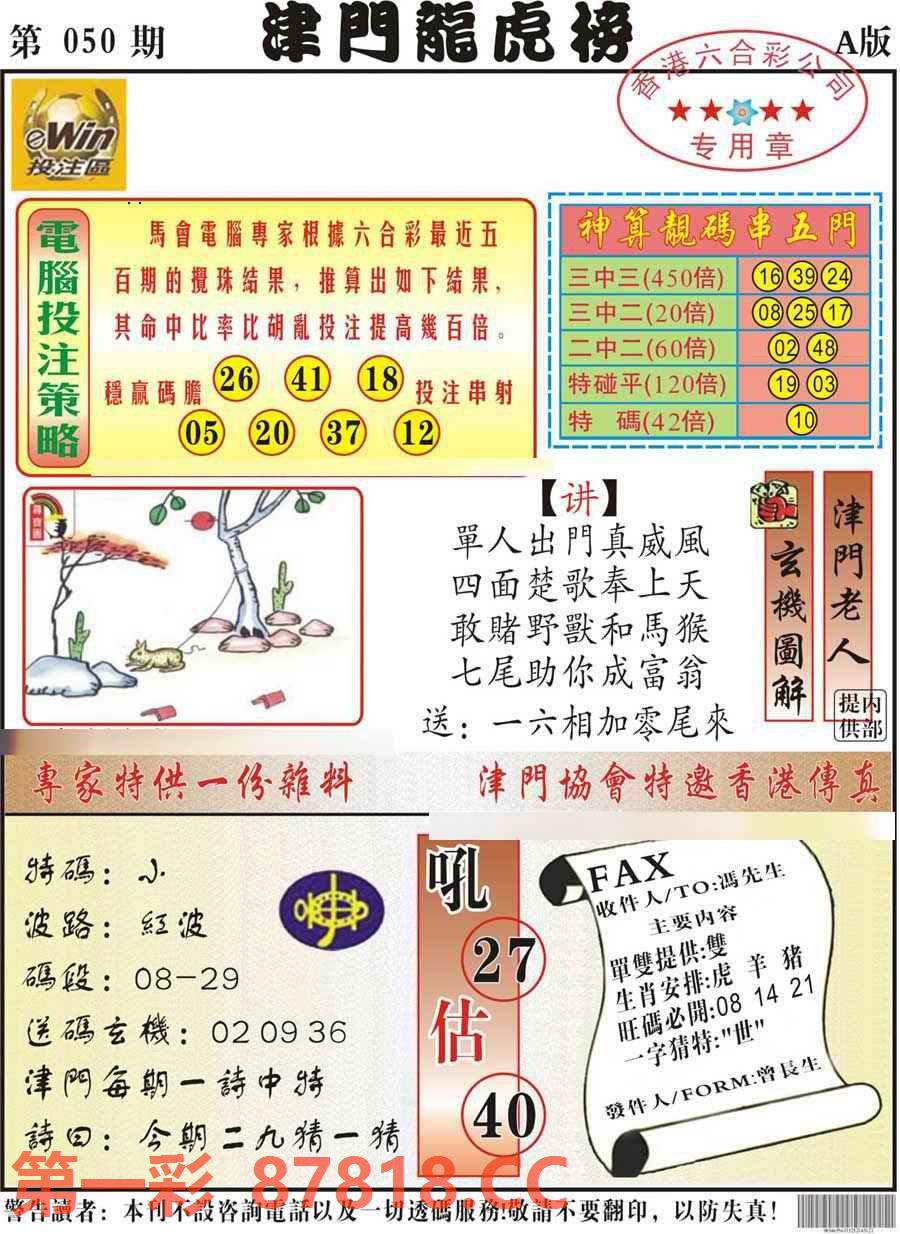 第 050 期
津門龍虎榜
A版
香港六合彩公司
专用章
eWin
投注區
電腦投注策略
馬會電腦專家根據六合彩最近五
百期的攪珠結果，推算出如下結果，
其命中比率比胡亂投注提高幾百倍。
穩赢碼膽 26 41 18 投注串射
05 20 37 12
神算靚碼串五門
三中三(450倍) 16 39 24
三中二(20倍) 08 25 17
二中二(60倍) 02 48
特碰平(120倍) 19 03
特 碼(42倍) 10
尋寶圖
【讲】
單人出門真威風
四面楚歌奉上天
敢賭野獸和馬猴
七尾助你成富翁
送：一六相加零尾來
玄機圖解
津門老人
内部提供
專家特供一份雜料
津門協會特邀香港傳真
特碼：小
波路：紅波
碼段：08-29
送碼玄機：02 09 36
津門每期一詩中特
詩曰：今期二九猜一猜
吼
27
估
40
FAX
收件人/TO:馮先生
主要内容
單雙提供:雙
生肖安排:虎 羊 猪
旺碼必開:08 14 21
一字猜特:"世"
發件人/FORM:曾長生
第一彩 87818.CC
警告讀者：本刊不設咨詢電話以及一切透碼服務!敬請不要翻印，以防失真！